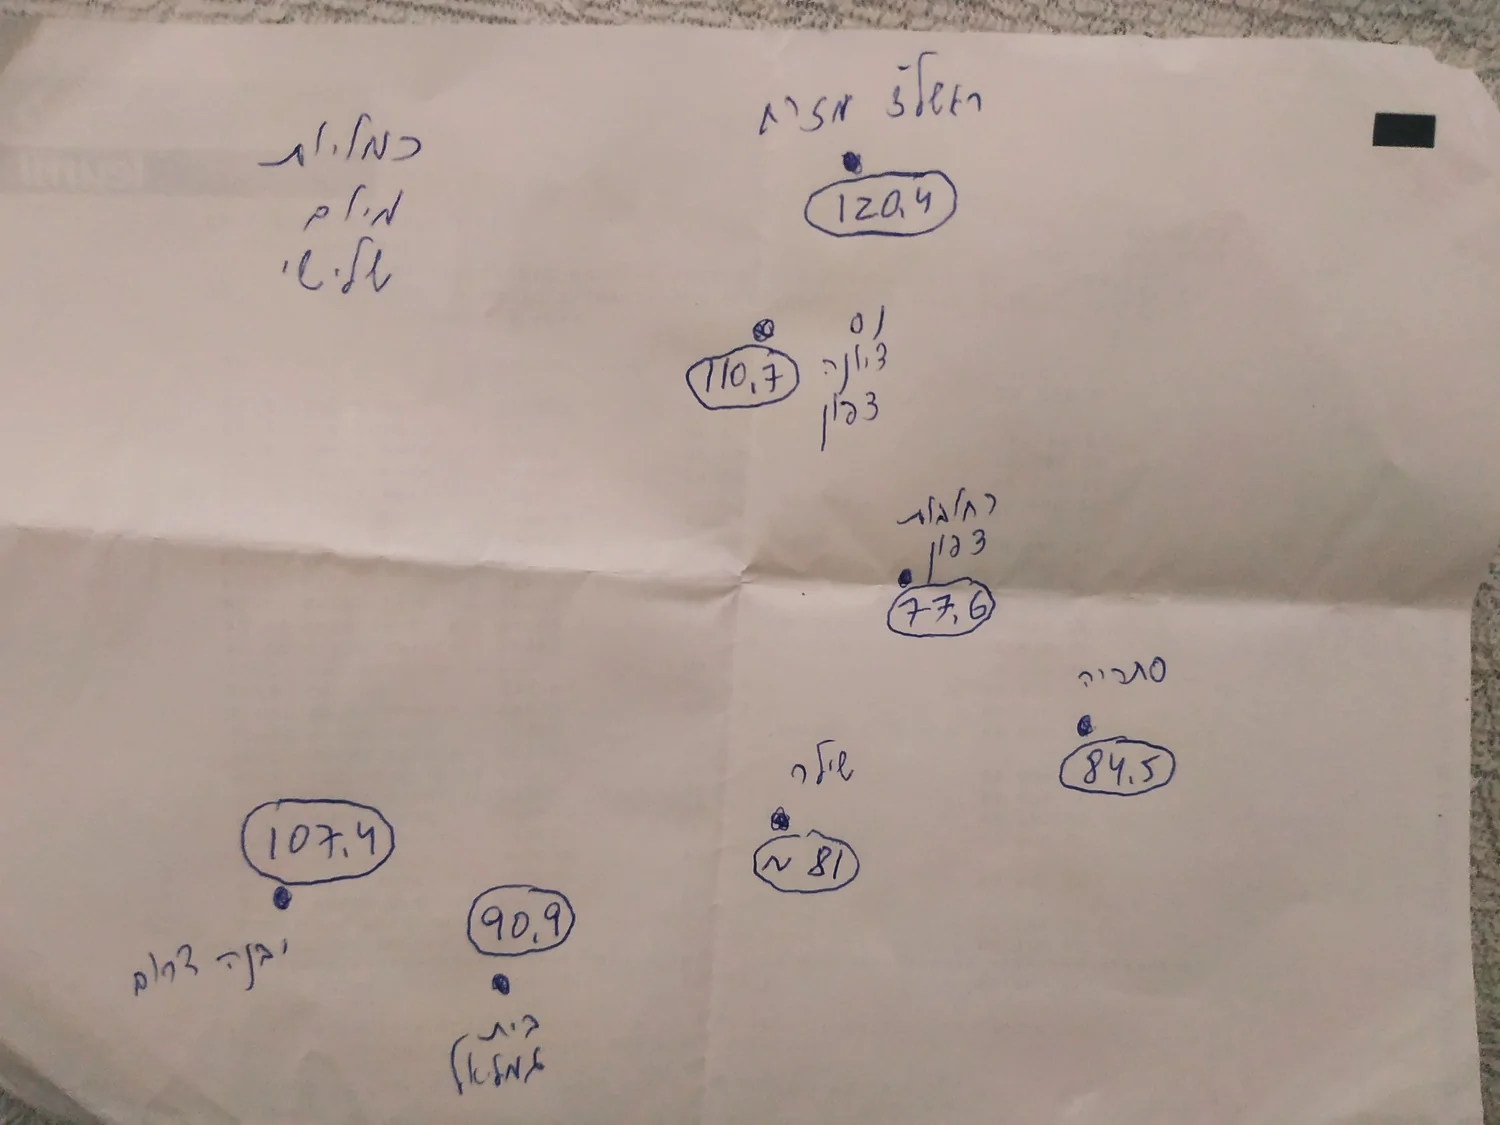 ראשל"צ מזרח
120,4
כמליות
מילם
שלישי
נס
ציונה
צפון
110,7
רחובות
צפון
77,6
סתריה
84,5
שילר
~ 81
107,4
יבנה דרום
90,9
בית
גמליאל